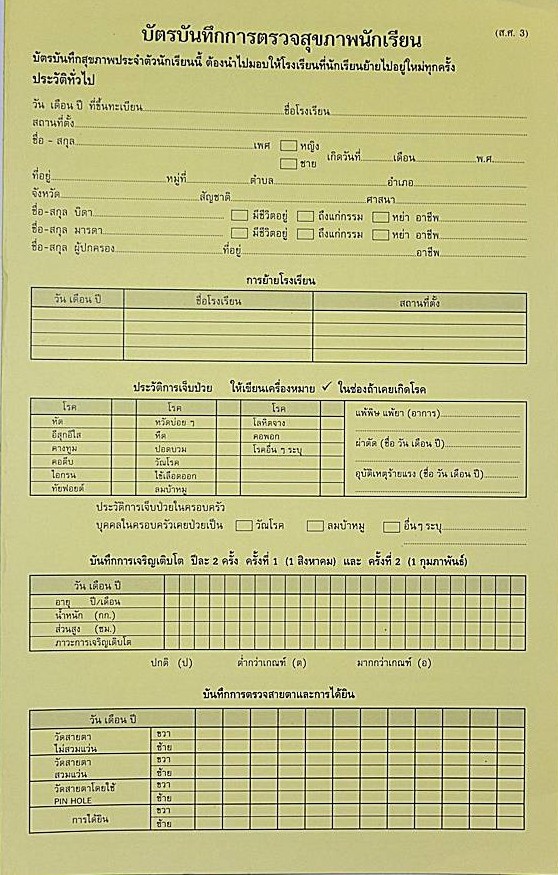 บัตรบันทึกการตรวจสุขภาพนักเรียน (ส.ศ. 3)
บัตรบันทึกสุขภาพประจำตัวนักเรียนนี้ ต้องนำไปมอบให้โรงเรียนที่นักเรียนย้ายไปอยู่ใหม่ทุกครั้ง
ประวัติทั่วไป
วัน เดือน ปี ที่ขึ้นทะเบียน ชื่อโรงเรียน
สถานที่ตั้ง
ชื่อ - สกุล เพศ หญิง
ชาย เกิดวันที่ เดือน พ.ศ.
ที่อยู่ หมู่ที่ ตำบล อำเภอ
จังหวัด สัญชาติ ศาสนา
ชื่อ-สกุล บิดา มีชีวิตอยู่ ถึงแก่กรรม หย่า อาชีพ
ชื่อ-สกุล มารดา มีชีวิตอยู่ ถึงแก่กรรม หย่า อาชีพ
ชื่อ-สกุล ผู้ปกครอง ที่อยู่ อาชีพ
การย้ายโรงเรียน
วัน เดือน ปี ชื่อโรงเรียน สถานที่ตั้ง
ประวัติการเจ็บป่วย ให้เขียนเครื่องหมาย ✓ ในช่องถ้าเคยเกิดโรค
โรค โรค โรค
หัด หวัดบ่อย ๆ โลหิตจาง แพ้พิษ แพ้ยา (อาการ)
อีสุกอีใส หืด คอพอก
คางทูม ปอดบวม โรคอื่น ๆ ระบุ ผ่าตัด (ชื่อ วัน เดือน ปี)
คอตีบ วัณโรค
ไอกรน ไข้เลือดออก อุบัติเหตุร้ายแรง (ชื่อ วัน เดือน ปี)
ทัยฟอยด์ ลมบ้าหมู
ประวัติการเจ็บป่วยในครอบครัว
บุคคลในครอบครัวเคยป่วยเป็น วัณโรค ลมบ้าหมู อื่นๆ ระบุ
บันทึกการเจริญเติบโต ปีละ 2 ครั้ง ครั้งที่ 1 (1 สิงหาคม) และ ครั้งที่ 2 (1 กุมภาพันธ์)
วัน เดือน ปี
อายุ ปี/เดือน
น้ำหนัก (กก.)
ส่วนสูง (ซม.)
ภาวะการเจริญเติบโต
ปกติ (ป) ต่ำกว่าเกณฑ์ (ต) มากกว่าเกณฑ์ (อ)
บันทึกการตรวจสายตาและการได้ยิน
วัน เดือน ปี
วัดสายตา ขวา
ไม่สวมแว่น ซ้าย
วัดสายตา ขวา
สวมแว่น ซ้าย
วัดสายตาโดยใช้ ขวา
PIN HOLE ซ้าย
การได้ยิน ขวา
ซ้าย